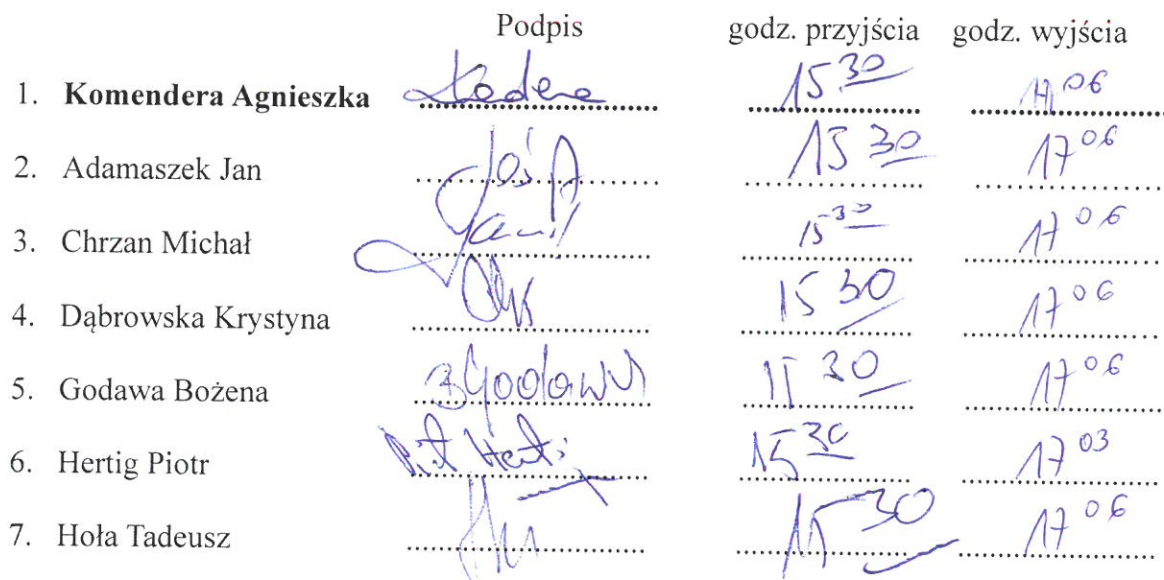 Podpis godz. przyjścia godz. wyjścia
1. Komendera Agnieszka 15 30 17 06
2. Adamaszek Jan 15 30 17 06
3. Chrzan Michał 15 30 17 06
4. Dąbrowska Krystyna 15 30 17 06
5. Godawa Bożena BGodawa 15 30 17 06
6. Hertig Piotr 15 30 17 03
7. Hoła Tadeusz 15 30 17 06